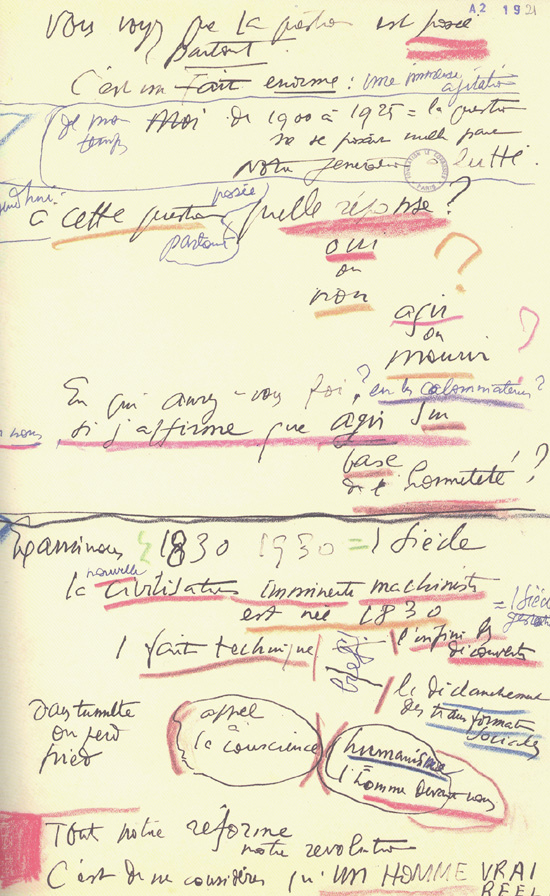 A2 19 21
Vous voyez que la question est posée
partout.
C'est un fait enorme : une immense
agitation
de mon Moi de 1900 à 1925 = la question
temps ne se posait nulle part
Notre generation lutté
FONDATION LE CORBUSIER PARIS
à cette question posée quelle réponse ?
partout
oui
ou
non
?
agir
ou
mourir
?
En qui aurez-vous foi ? en les calomniateurs ?
si j'affirme que agir sur
base
de l'honnêteté ! ?
Examinons 1830 1930 = 1 siècle
nouvelle
la civilisation imminente machiniste
est née 1830 = 1 siècle
1 fait technique / l'infini des
découvertes
le déclanchement
des transformations
sociales
Dans tumulte
on perd
pied
appel
à
la conscience
humanisme
l'homme devant nous
Tout notre réforme
notre revolution
C'est de ne considérer qu'UN HOMME VRAI
REEL